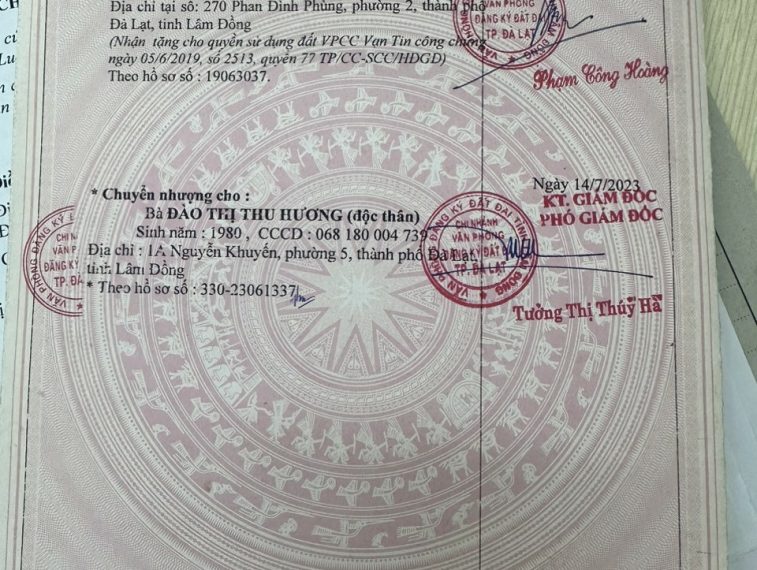 Địa chỉ tại số: 270 Phan Đình Phùng, phường 2, thành phố
Đà Lạt, tỉnh Lâm Đồng
(Nhận tặng cho quyền sử dụng đất VPCC Vạn Tin công chứng
ngày 05/6/2019, số 2513, quyển 77 TP/CC-SCC/HDGD)
Theo hồ sơ số : 19063037.
VĂN PHÒNG
ĐĂNG KÝ ĐẤT ĐAI
TP. ĐÀ LẠT
Phạm Công Hoàng
* Chuyển nhượng cho :
Bà ĐÀO THỊ THU HƯƠNG (độc thân)
Sinh năm : 1980 , CCCD : 068 180 004 739
Địa chỉ : 1A Nguyễn Khuyến, phường 5, thành phố Đà Lạt,
tỉnh Lâm Đồng
* Theo hồ sơ số : 330-23061337
Ngày 14/7/2023
KT. GIÁM ĐỐC
PHÓ GIÁM ĐỐC
VĂN PHÒNG ĐĂNG KÝ ĐẤT ĐAI TỈNH LÂM ĐỒNG
CHI NHÁNH
VĂN PHÒNG
ĐĂNG KÝ ĐẤT ĐAI
TP. ĐÀ LẠT
Tưởng Thị Thúy Hà
VĂN PHÒNG ĐĂNG KÝ
CHI N
VĂN P
ĐĂNG KÝ
TP. ĐÀ